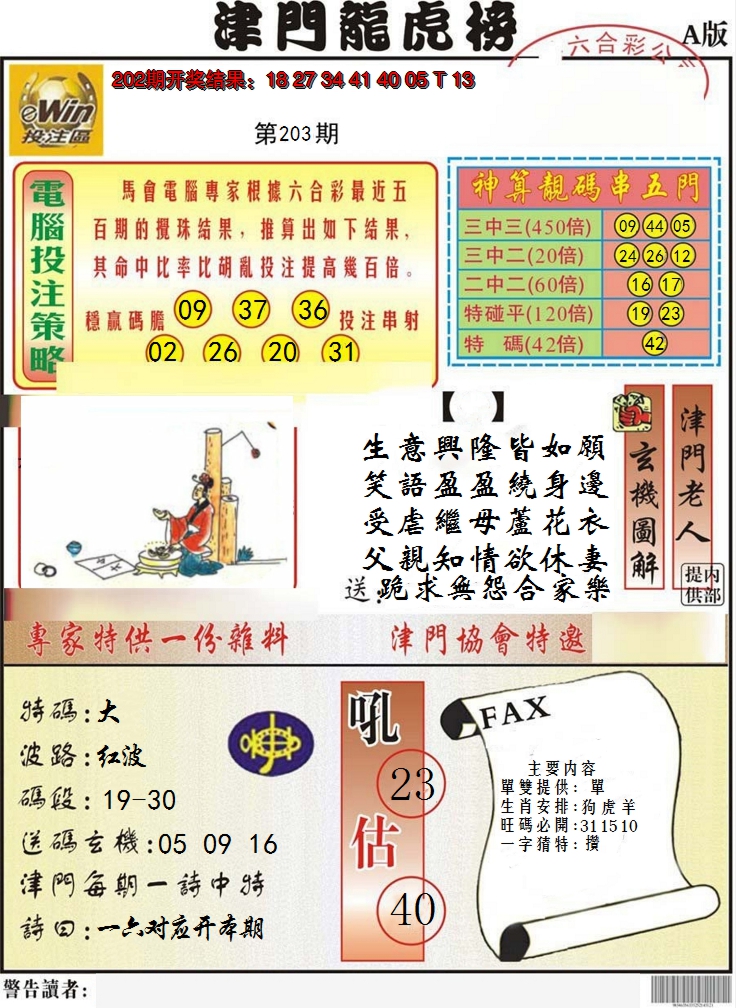 津門龍虎榜
A版
六合彩公
202期开奖结果：18 27 34 41 40 05 T 13
eWin
投注區
第203期
電腦投注策略
馬會電腦專家根據六合彩最近五
百期的攪珠结果，推算出如下结果，
其命中比率比胡亂投注提高幾百倍。
穩贏碼膽 09 37 36 投注串射
02 26 20 31
神算靚碼串五門
三中三(450倍) 09 44 05
三中二(20倍) 24 26 12
二中二(60倍) 16 17
特碰平(120倍) 19 23
特 碼(42倍) 42
【 】
生意興隆皆如願
笑語盈盈繞身邊
受虐繼母蘆花衣
父親知情欲休妻
送:跪求無怨合家樂
玄機圖解
津門老人
提供
内部
專家特供一份雜料
津門協會特邀
特碼:大
波路:红波
碼段:19-30
送碼玄機:05 09 16
津門每期一詩中特
詩曰:一六对应开本期
吼
23
估
40
FAX
主要内容
單雙提供：單
生肖安排:狗虎羊
旺碼必開:311510
一字猜特:攢
警告讀者: